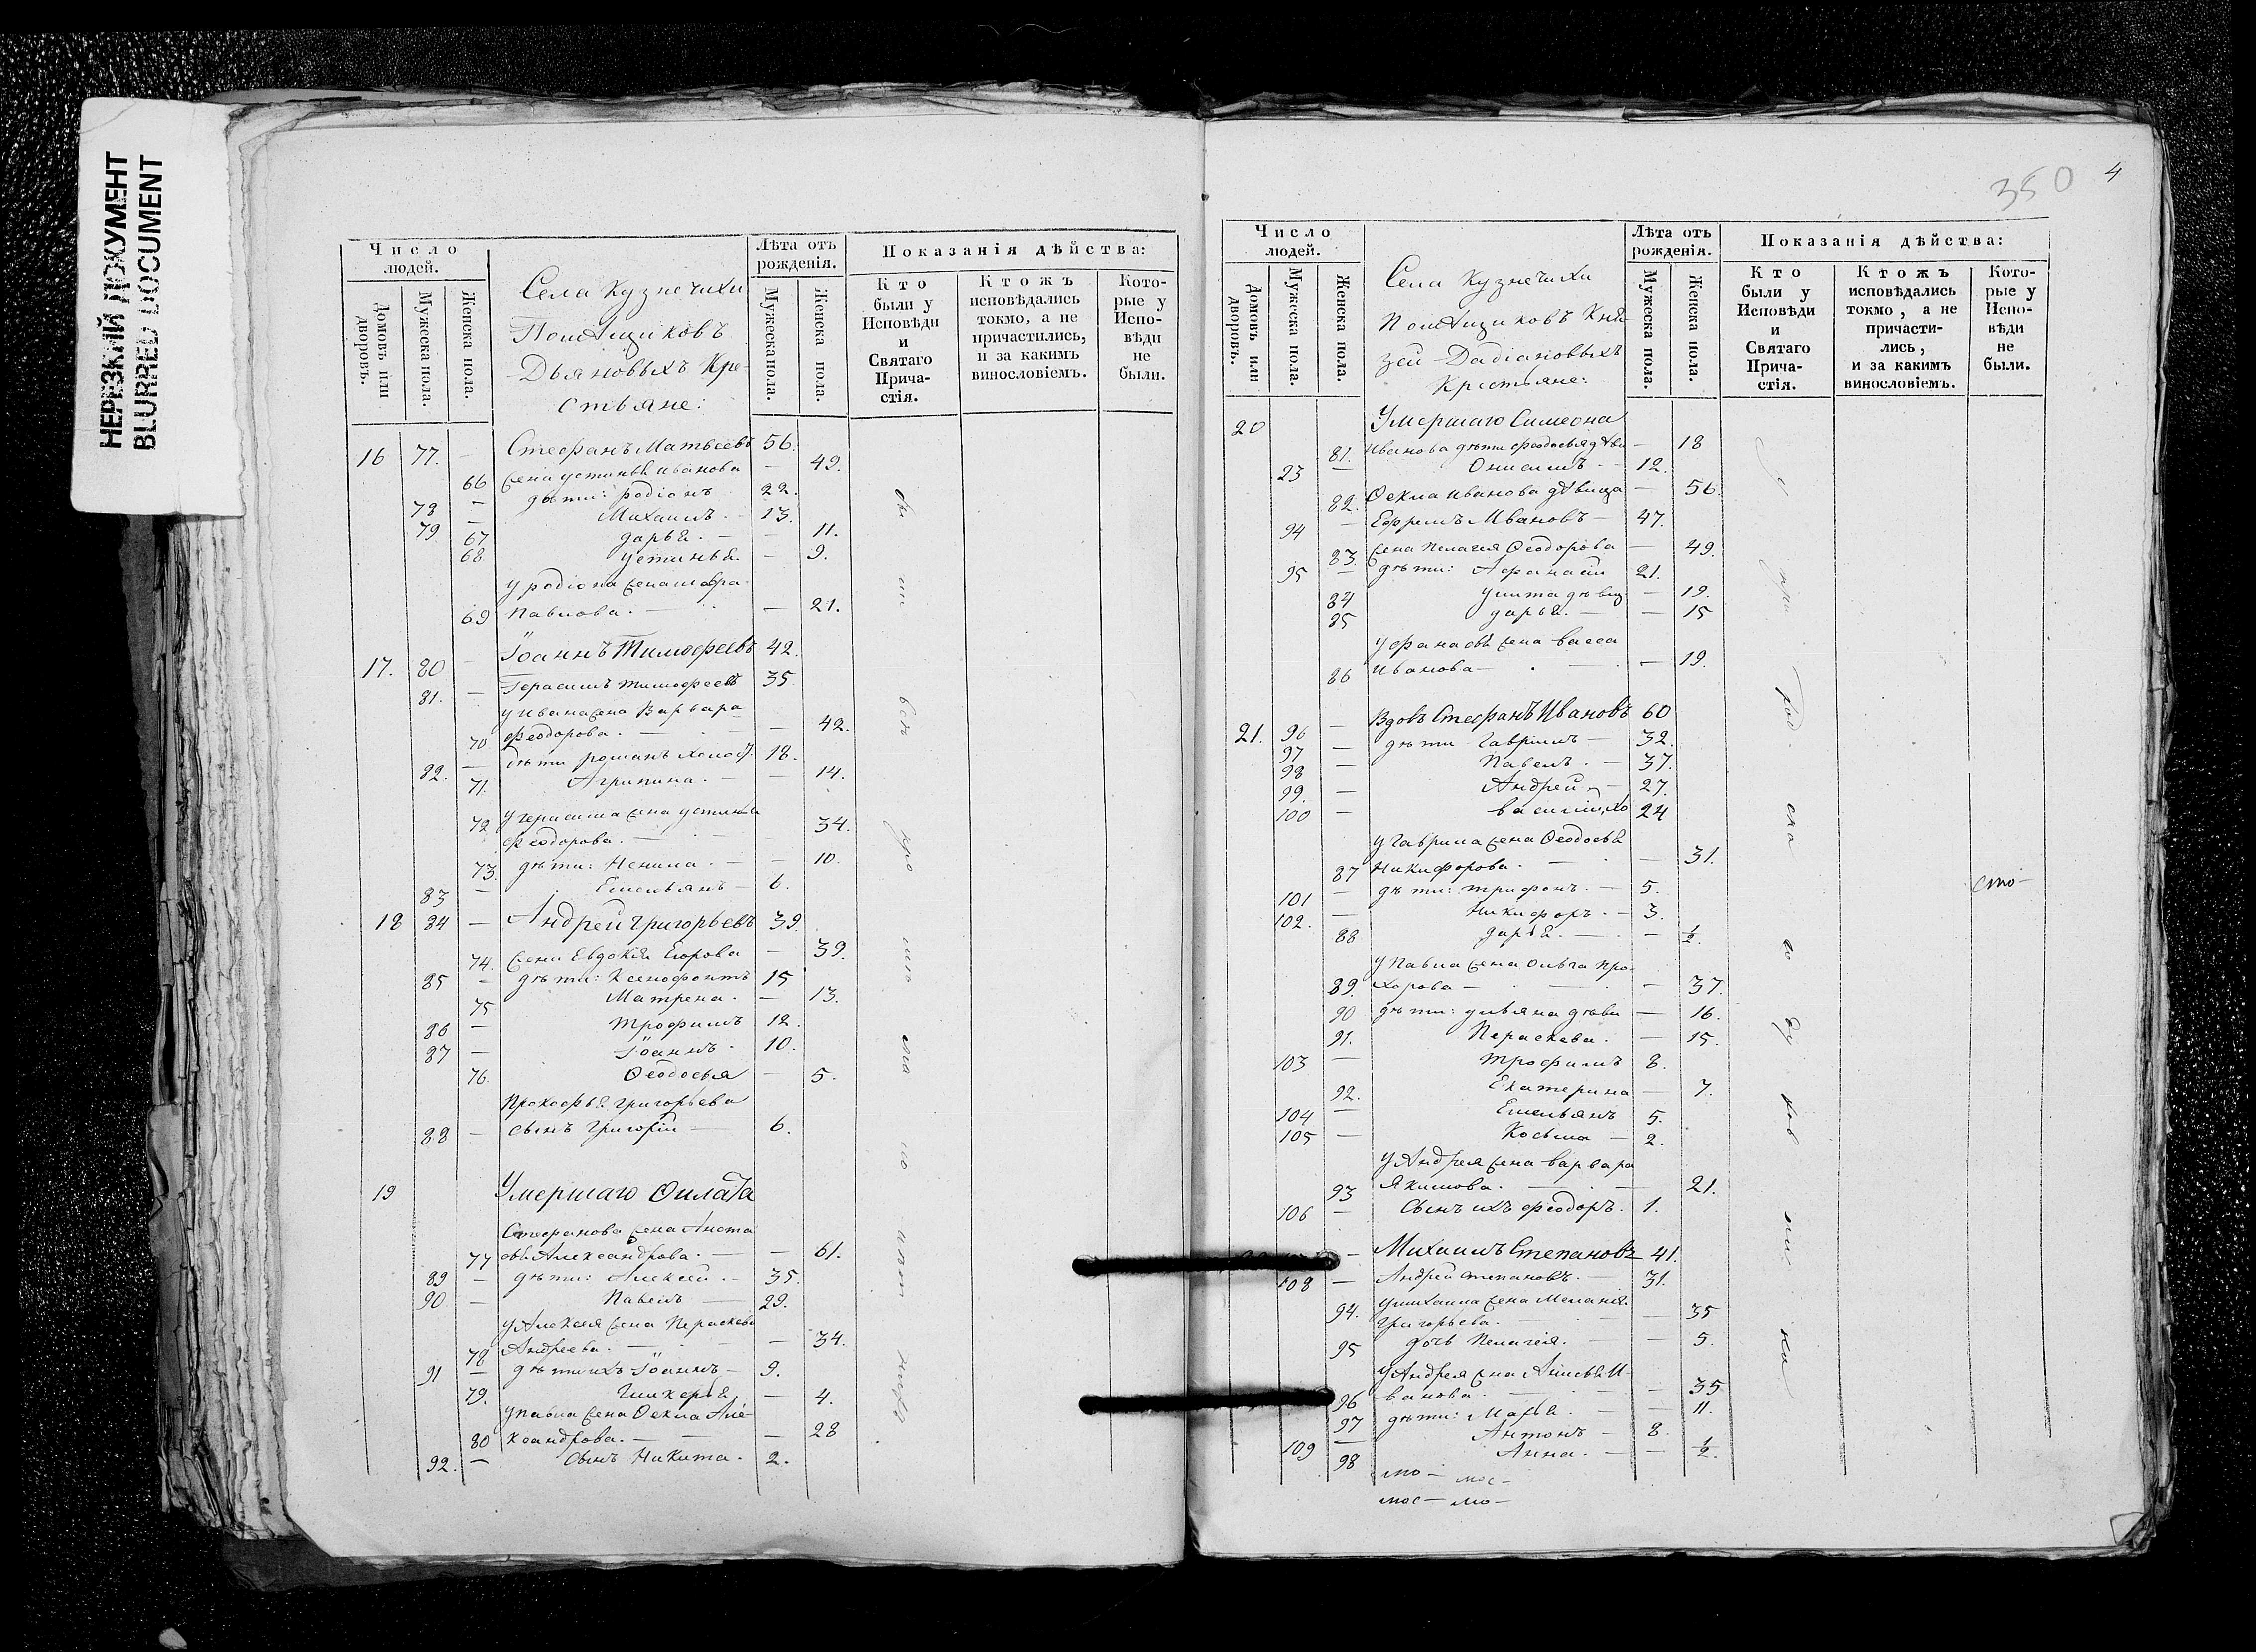 НЕРЕЗКИЙ ДОКУМЕНТ
BLURRED DOCUMENT
Число людей.
Домовъ или дворовъ.
Мужеска пола.
Женска пола.
Села Кузнечихи
Помѣщиковъ
Дьяновыхъ Кре-
стьяне:
Лѣта отъ рожденія.
Мужеска пола.
Женска пола.
Показанія дѣйства:
Кто были у Исповѣди и Святаго Прича- стія.
Ктожъ исповѣдались токмо, а не причастились, и за какимъ винословіемъ.
Кото- рые у Испо- вѣди не были.
16 77. — Стефанъ Матвеевъ 56.
66 жена устинья иванова — 49.
78 — дѣти: родіонъ 22.
79 — Михаилъ. — 13.
67 дарья. — — 11.
68 устинья. — 9.
у родіона жена
69 Павлова. — — 21.
17. 80 — Іоаннъ Тимофеевъ 42.
81. — Герасимъ тимофеевъ 35.
у ивана жена Варвара
70 феодорова. — — 42.
82. — дѣти романъ холост. 18.
71. Агрипина. — — 14.
у герасима жена устинья
72 феодорова. — 34.
73. дѣти: Ненила. — — 10.
83 — Емельянъ — 6.
18 84 — Андрей Григорьевъ 39.
74. жена Евдокія Егорова — 39.
85 — дѣти: Ксенофонтъ 15
75 Матрена. — 13.
86 — трофимъ 12.
87 — Іоаннъ. 10.
76. Феодосья — 5.
Прокофья григорьева
88 — сынъ Григорій — 6.
19 Умершаго Филата
Стефанова жена Анста
77 сья Александрова. — — 61.
89 — дѣти: Алексей. — 35.
90 — Павелъ — 29.
у Алексея жена Параскева
78 Андреева. — — 34.
91 — дѣти ихъ Іоаннъ — 9.
79. Гликерья — 4.
у павла жена Фекла Але-
80 ксандрова. — — 28
92. — сынъ Никита. 2.
350 4
Число людей.
Домовъ или дворовъ.
Мужеска пола.
Женска пола.
Села Кузнечихи
Помѣщиковъ Кня-
зей Дадіановыхъ
Крестьяне:
Лѣта отъ рожденія.
Мужеска пола.
Женска пола.
Показанія дѣйства:
Кто были у Исповѣди и Святаго Прича- стія.
Ктожъ исповѣдались токмо, а не причасти- лись, и за какимъ винословіемъ.
Кото- рые у Испо- вѣди не были.
20 Умершаго Симеона
81. Иванова дѣти феодосья дѣви — 18
93 — Онисимъ — 12.
82. Фекла иванова дѣвица — 56.
94 — Ефремъ Ивановъ — 47.
83. жена пелагея Феодорова — 49.
95 — дѣти: Афанасій 21.
84 улита дѣвиц. — 19.
85 дарья. — — 15
у афанасья жена васса
86 иванова — — 19.
21. 96 — Вдовъ Стефанъ Ивановъ 60
97 — дѣти Гаврилъ — 32.
98 — Павелъ. — 37.
99. — Андрей — 27.
100 — василій, хо 24
у Гаврила жена Феодосья
87 Никифорова. — — 31.
101 — дѣти: трифонъ. — 5.
102. — Никифоръ. — 3.
88 дарья. — — ½.
у Павла жена Ольга Про-
89. хорова — — 37.
90 дѣти: ульяна дѣви — 16.
91. Параскева. — 15.
103 — трофимъ 8.
92. Екатерина — 7.
104 — Емельянъ 5.
105 — Косьма — 2.
у Андрея жена варвара
93 Якимова. — — 21.
106 — Сынъ ихъ феодоръ. 1.
— Михаилъ Степановъ — 41.
108 — Андрей степановъ. — 31.
94. у михаила жена Меланья
Григорьева. — — 35
95 дочь Пелагея. — — 5.
у Андрея жена И-
96 ванова. — — 35
97 дѣти: Марья. — — 11.
109 — Антонъ — 8.
98 Анна. — — ½.